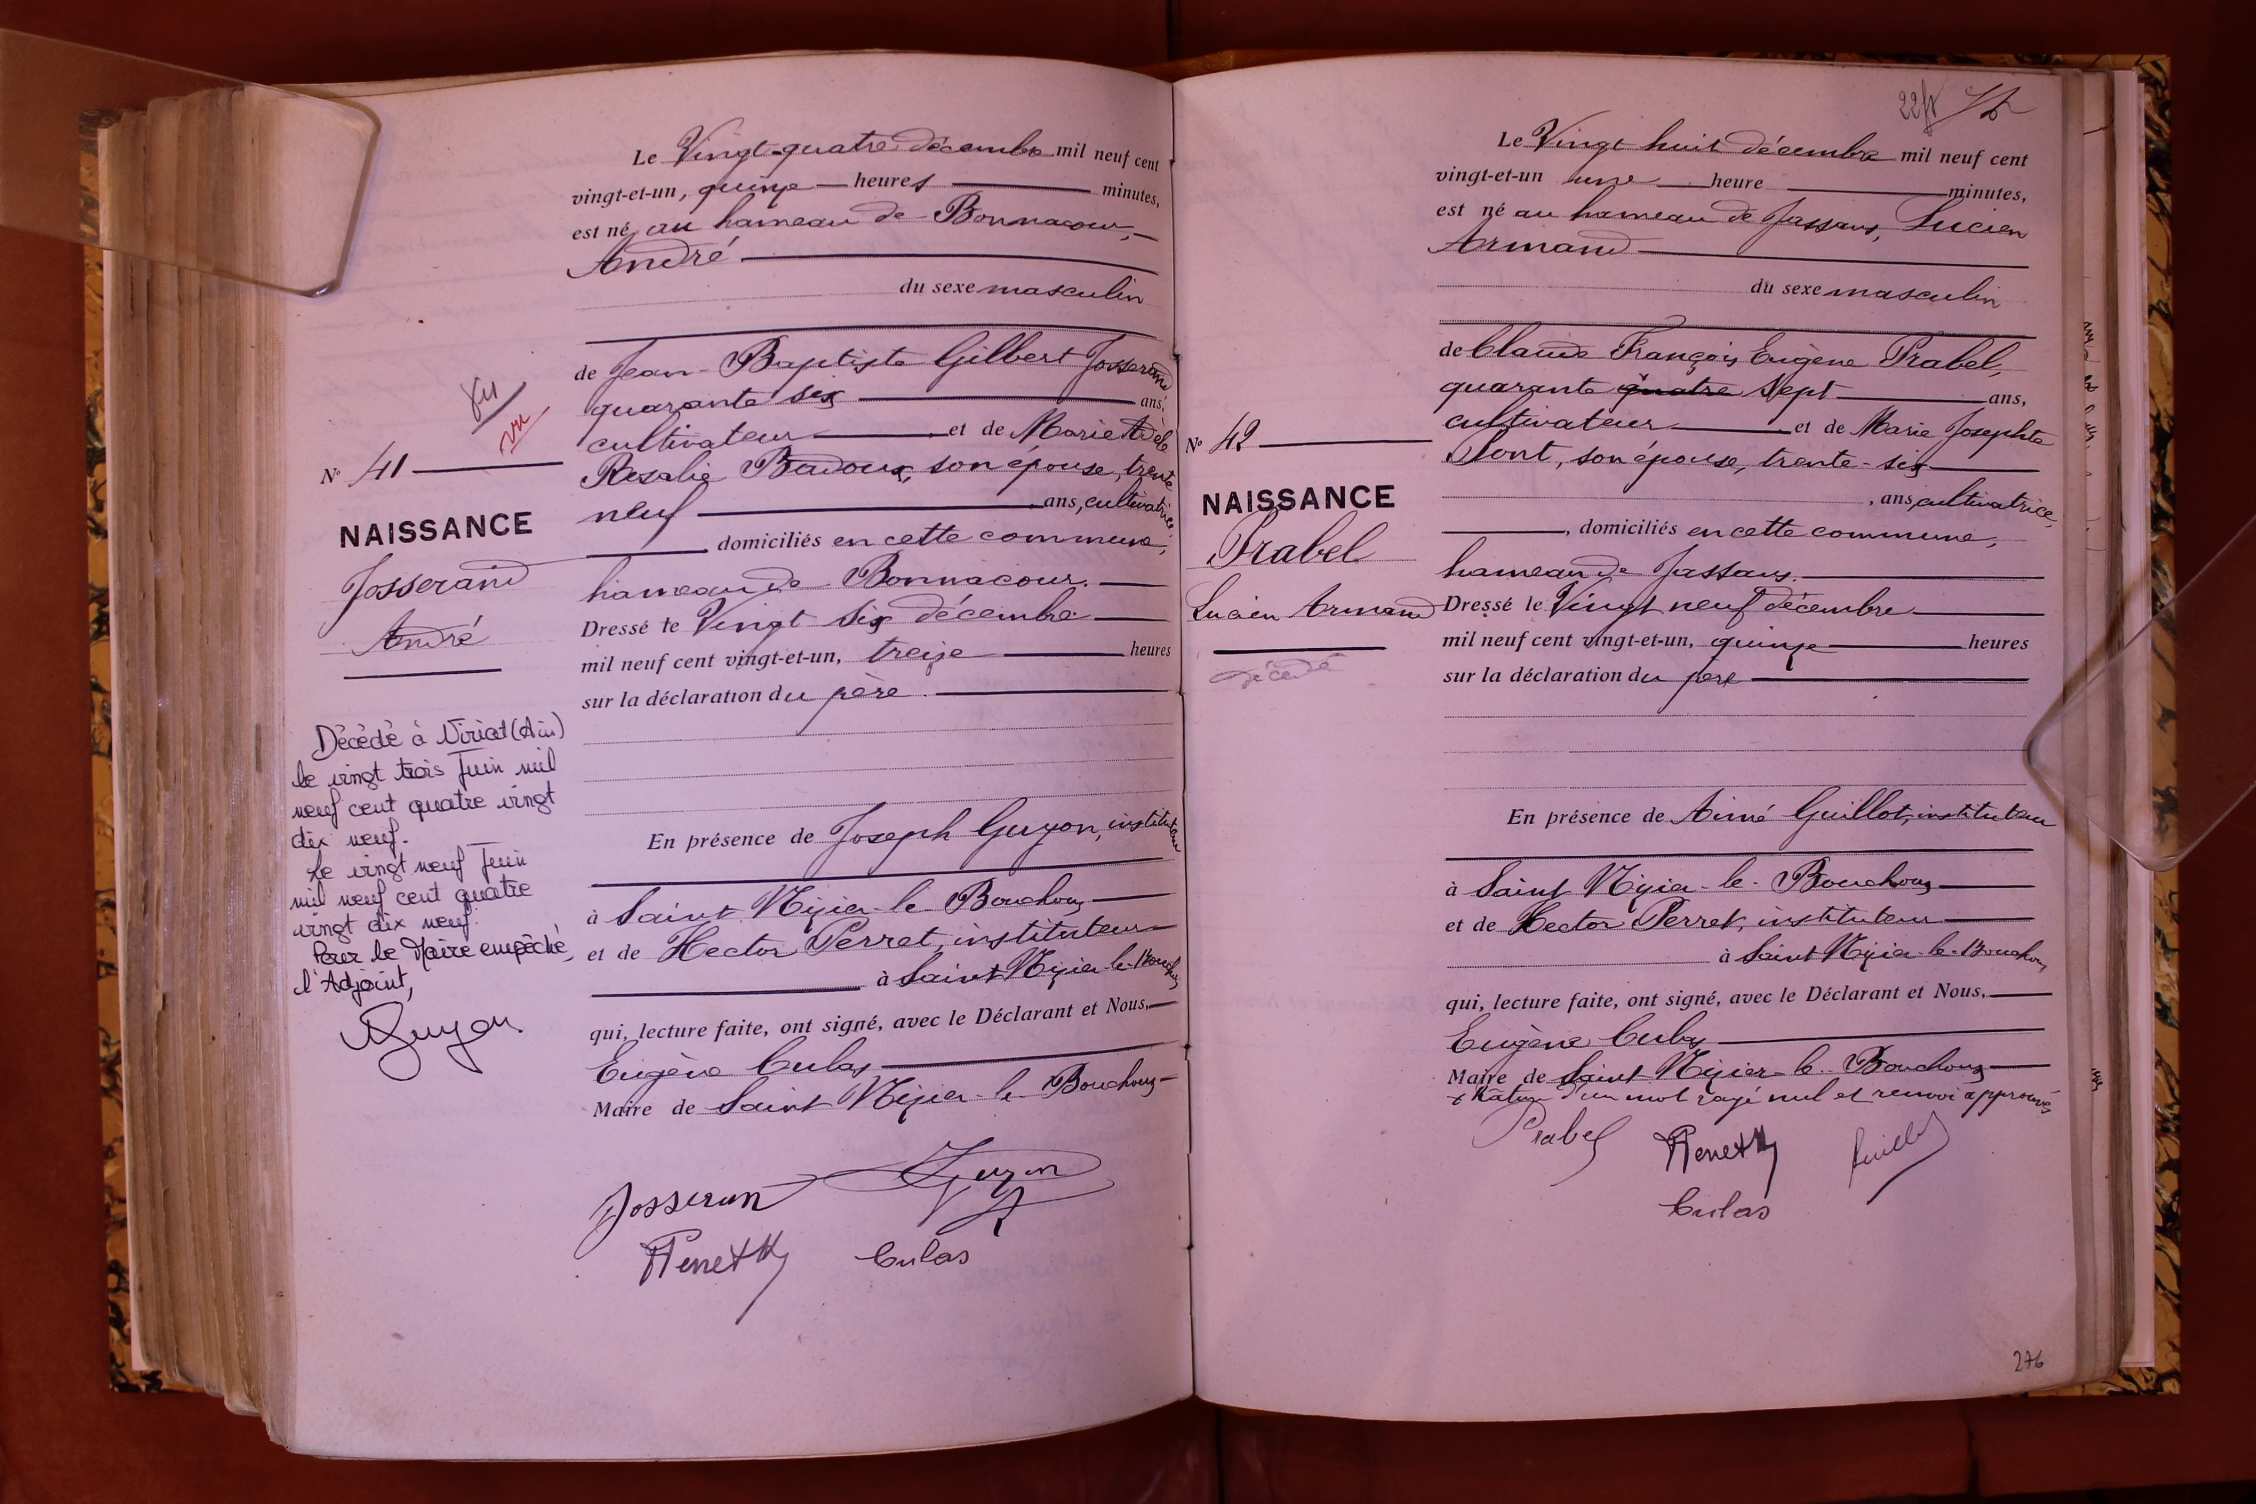 Le Vingt-quatre décembre mil neuf cent
vingt-et-un, quinze heures minutes,
est né au hameau de Bonnacour,
André
du sexe masculin
de Jean-Baptiste Gilbert Josserand
quarante six ans,
cultivateur et de Marie Adèle
Rosalie Badoux, son épouse, trente
neuf ans, cultivatrice,
domiciliés en cette commune,
hameau de Bonnacour.
Dressé le Vingt six décembre
mil neuf cent vingt-et-un, treize heures
sur la déclaration du père.
En présence de Joseph Guyon, instituteur
à Saint Nizier-le Bouchoux
et de Hector Perret, instituteur
à Saint Nizier-le-Bouchoux
qui, lecture faite, ont signé, avec le Déclarant et Nous,
Eugène Culas
Maire de Saint Nizier-le Bouchoux
Josseran Guyon
HPerret Culas
vu
vu
N° 41
NAISSANCE
Josserand
André
Décédé à Viriat (Ain)
le vingt trois Juin mil
neuf cent quatre vingt
dix neuf.
Le vingt neuf Juin
mil neuf cent quatre
vingt dix neuf.
Pour le Maire empêché,
l'Adjoint,
Guyon
Le Vingt huit décembre mil neuf cent
vingt-et-un une heure minutes,
est né au hameau de Jassans, Lucien
Armand
du sexe masculin
de Claude François Eugène Prabel,
quarante quatre sept ans,
cultivateur et de Marie Josephte
Pont, son épouse, trente-six
, ans, cultivatrice,
, domiciliés en cette commune,
hameau de Jassans.
Dressé le Vingt neuf décembre
mil neuf cent vingt-et-un, quinze heures
sur la déclaration du père
En présence de Aimé Guillot, instituteur
à Saint Nizier-le-Bouchoux
et de Hector Perret, instituteur
à Saint Nizier-le-Bouchoux
qui, lecture faite, ont signé, avec le Déclarant et Nous,
Eugène Culas
Maire de Saint Nizier-le-Bouchoux
d'un mot rayé nul et renvoi approuvés
Prabel HPerret Guillot
Culas
N° 42
NAISSANCE
Prabel
Lucien Armand
décédé
276